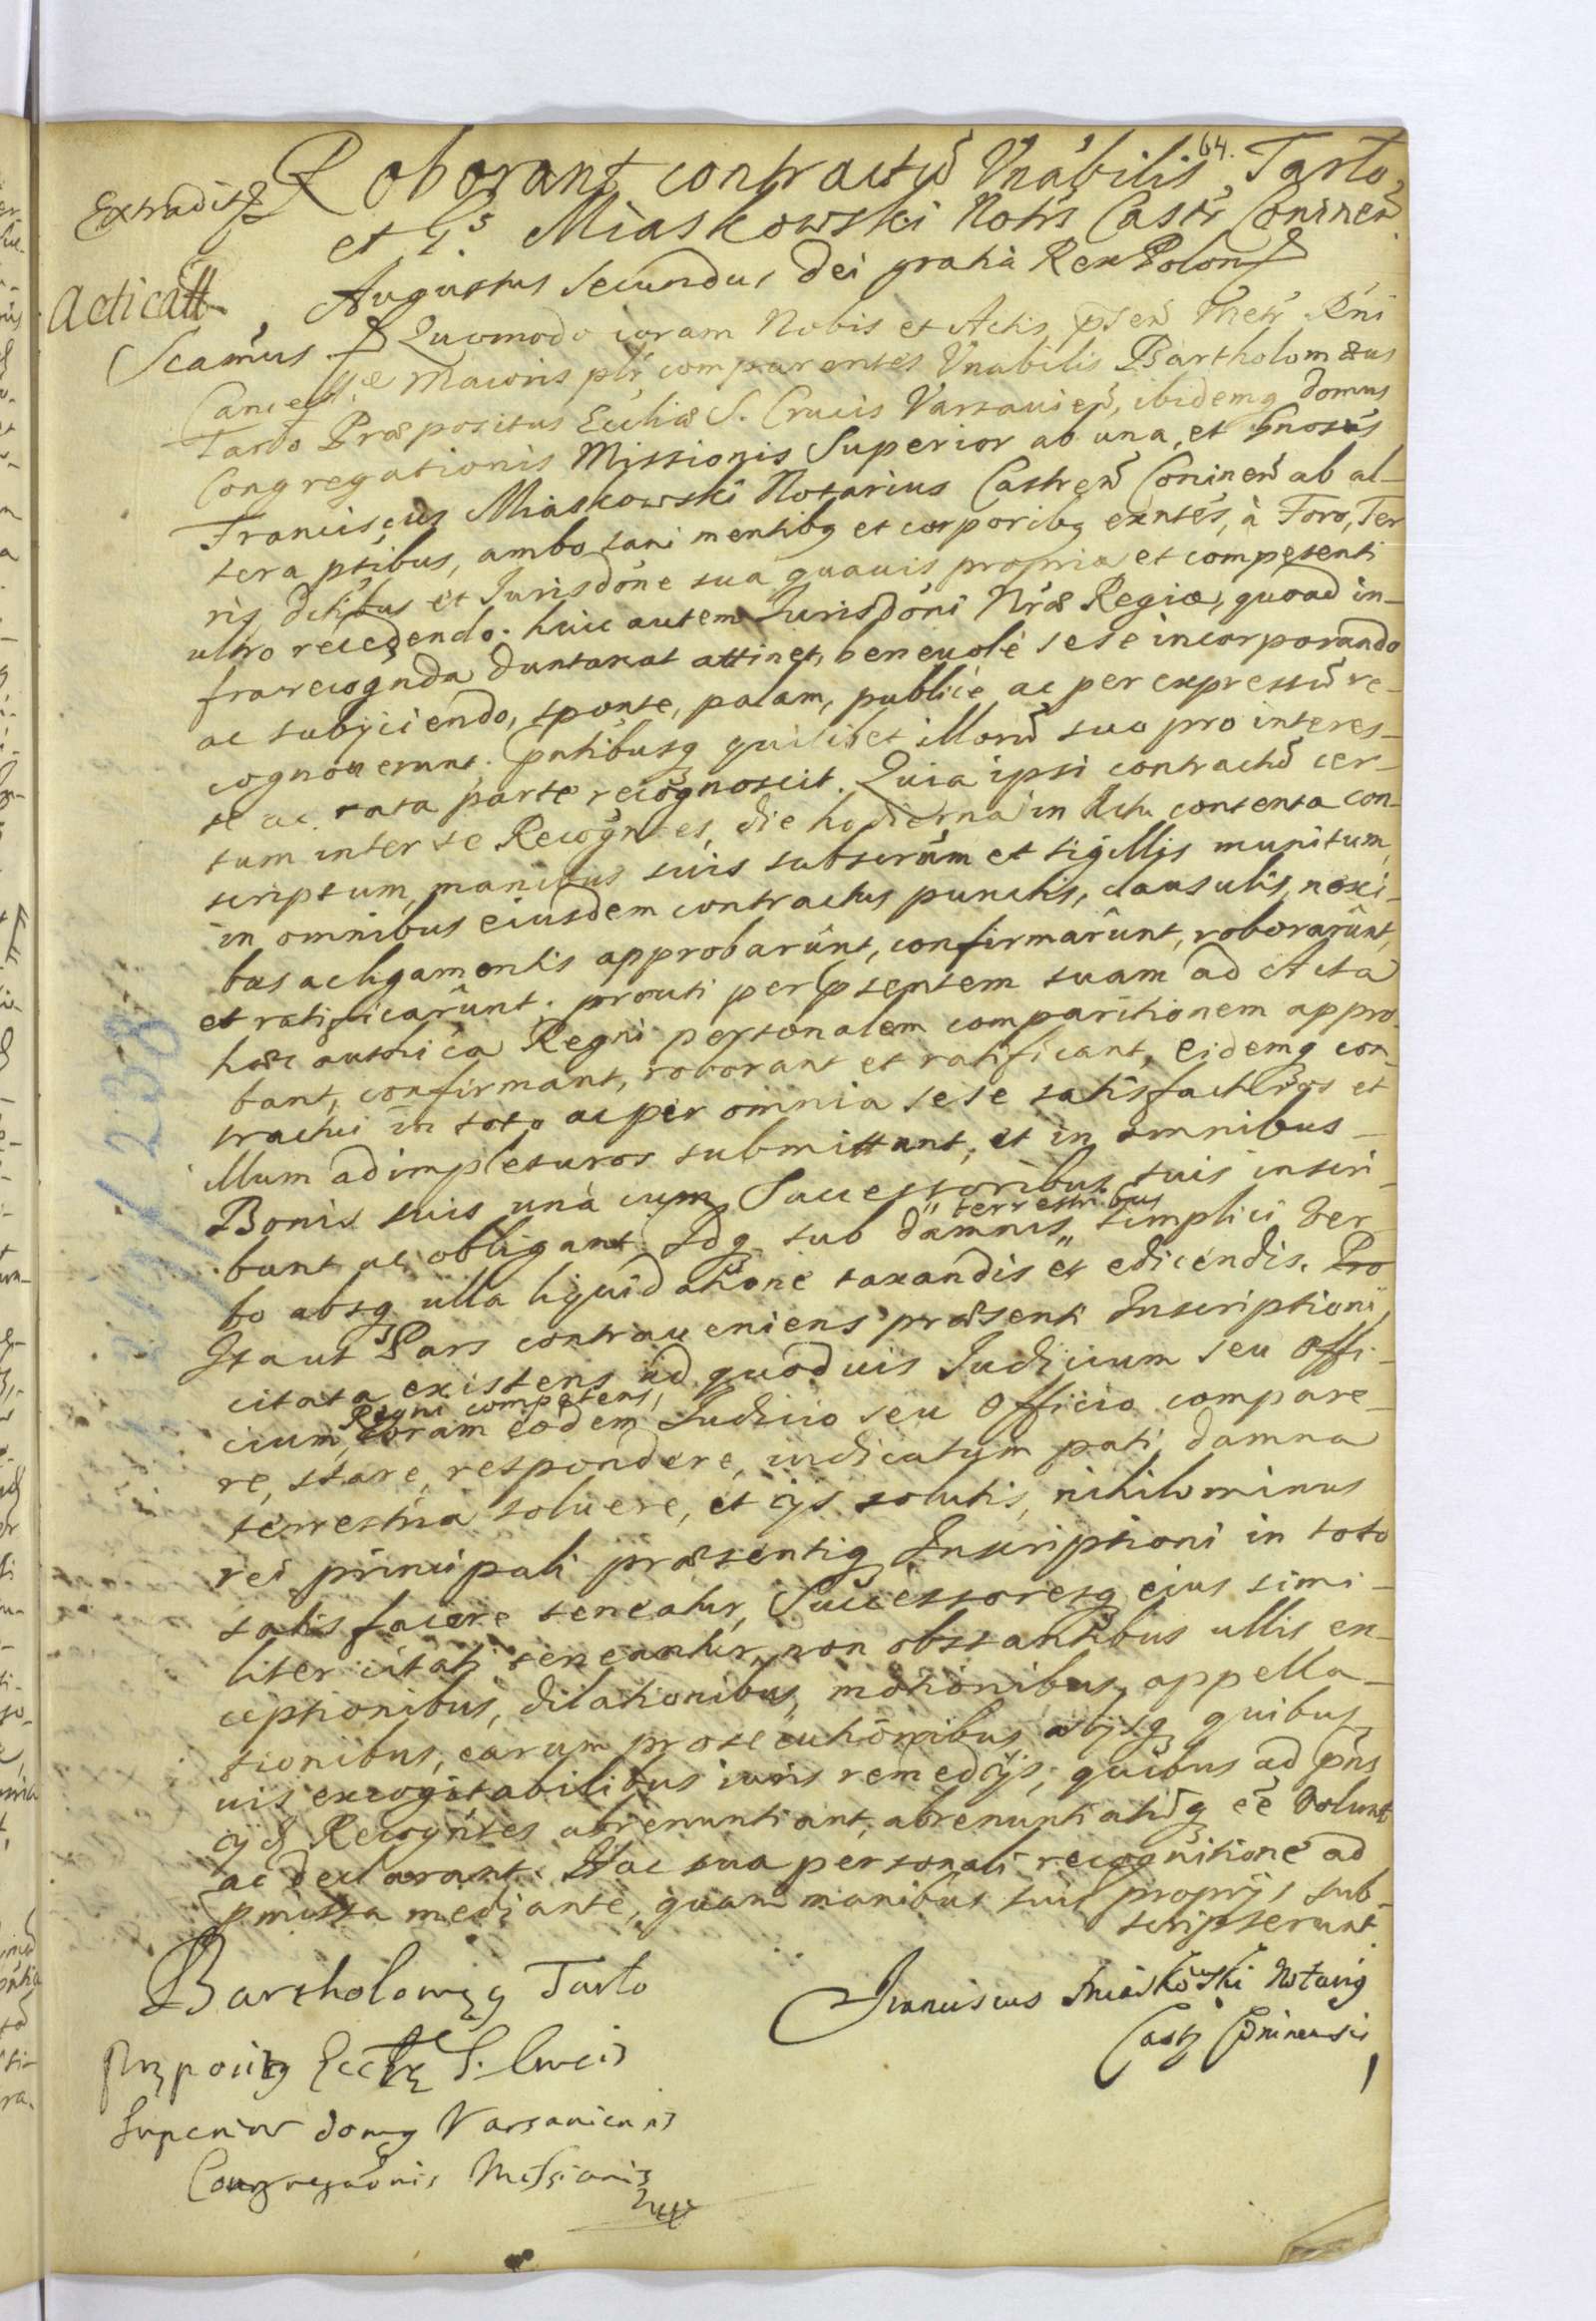 64.
Extradit
Roborant contractũ Vnãbilis Tarło
et Gs Miaskowski Notrs Castr Coninen̄
Acticatt
Augustus Secundus Dei gratia Rex Polon
Scãmus Quomodo coram Nobis et Actis psen̄ Metr Rñi
Cancell: Maioris plr comparentes Vnabilis Bartholomæus
Tarło Præpositus Eccliæ S. Crucis Varsauien̄, ibidemq domus
Congregationis Missionis Superior ab una, et Gnosus
Franciscus Miaskowski Notarius Castren̄ Coninen̄ ab al-
tera ptibus, ambo sani mentibq et corporibq exntes, à Foro, Ter
ris dctibus et Jurisdõne sua quauis propria et competenti
ultro recedendo. huic autem Jurisdõni Nræ Regiæ, quoad in-
frarecognda duntaxat attinet, beneuolè sese incorporando
ac subÿciendo, sponte, palam, publicè ac per expressũ re-
cognouerunt. pntibusq quilibet illorũ suo pro interes-
se ac rata parte recognoscit. Quia ipsi contractũ cer-
tum inter se Recogntes, die hodierna in Actu contenta con-
scriptum, manibus suis subscrũm et sigillÿs munitum,
in omnibus eiusdem contractus punctis, clausulis, nexi-
bus ac ligamentis approbarûnt, confirmarûnt, roborarûnt,
et ratificarûnt. prouti per psentem suam ad Acta
hæc authica Regni personalem comparitionem appro-
bant, confirmant, roborant et ratificant, eidemq con-
tractui in toto ac per omnia sese satisfacturos et
illum adimpleturos submittunt, et in omnibus
Bonis suis unà cum Successoribus suis inscri-
bunt ac obligant. Idq sub damnis terrestribus simplici ver-
bo absq ulla liquidatione taxandis et edicendis. Pro
Ita ut Pars contraueniens præsenti Inscriptioni,
citata existens ad quoduis Judicium seu Offi-
cium Regni competens, coram eodem Judicio seu Officio compare-
re, stare, respondere, iudicatum pati, damna
terrestria soluere, et ijs solutis, nihilominus
rei principali præsentiq Inscriptioni in toto
satisfacere teneatur, Successoresq eius simi-
liter citati teneantur, non obstantibus ullis ex-
ceptionibus, dilationibus, motionibus, appella-
tionibus, earum prosecutionibus alijsq quibus-
uis excogitabilibus iuris remedÿs, quibus ad pñs
ijd Recogntes abrenuntiant, abrenuntiatũq ẽe volunt
ac declarant. Hac sua personali recognitione ad
pmissa mediante, quam manibus suis proprÿs sub-
scripserunt
Bartholomæq Tarło
Præpositq Eccłæ S. Crucis
Superior domq Varsauiensis
Congregaõnis Missionis
Franciscus Miaskowski Notariq
Castr Coninensis